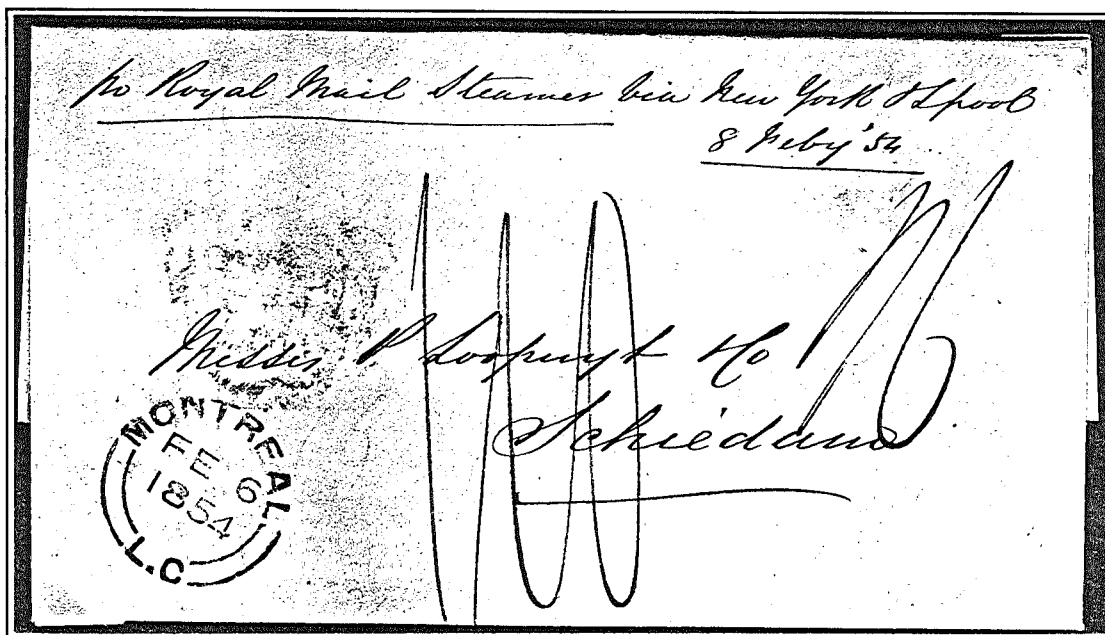 pr Royal Mail Steamer via New York & Lpool
8 Feby '54
Messrs P. Loopuyt & Co
Schiedam
MONTREAL
FE 6
1854
L.C